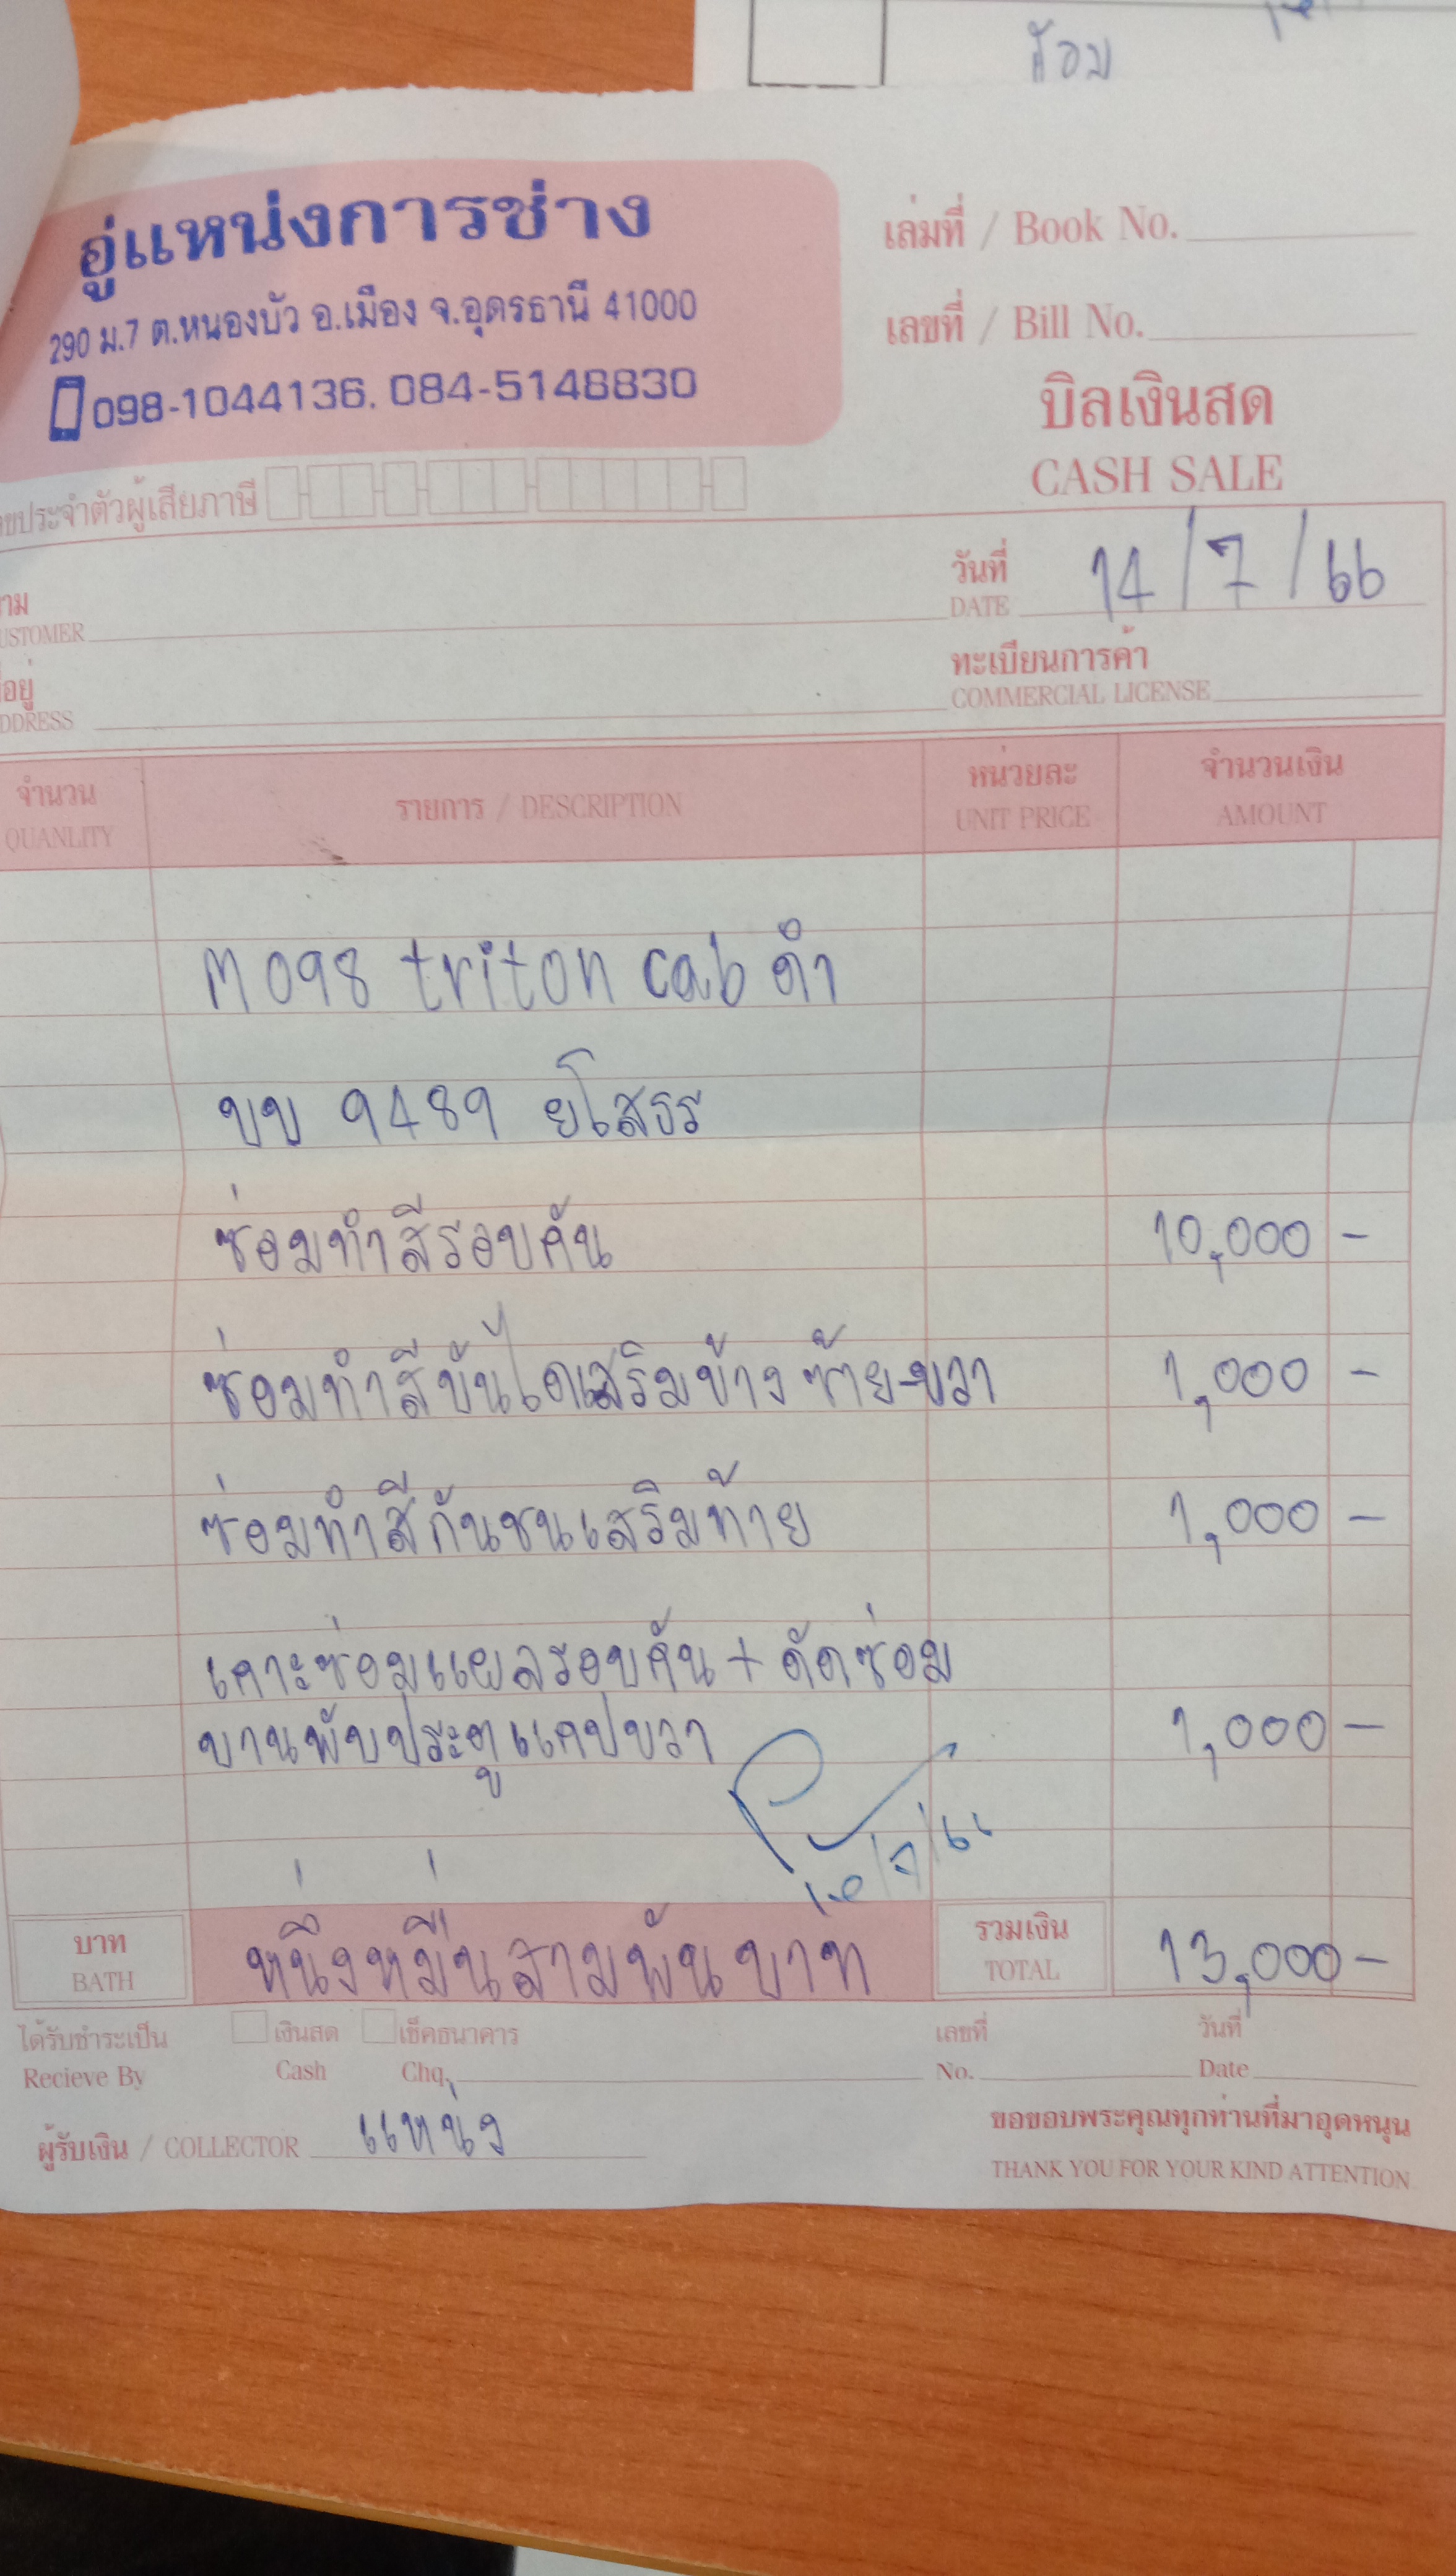 ซ้อม
อู่แหน่งการช่าง
290 ม.7 ต.หนองบัว อ.เมือง จ.อุดรธานี 41000
098-1044136, 084-5146830
เล่มที่ / Book No.
เลขที่ / Bill No.
บิลเงินสด
CASH SALE
ขประจำตัวผู้เสียภาษี
วันที่ 14/7/66
DATE
USTOMER
ทะเบียนการค้า
COMMERCIAL LICENSE
อยู่
DDRESS
จำนวน รายการ / DESCRIPTION หน่วยละ จำนวนเงิน
QUANLITY UNIT PRICE AMOUNT
M098 triton cab ดำ
บบ 9489 ยโสธร
ซ่อมทำสีรอบคัน 10,000 -
ซ่อมทำสีบันไดเสริมข้าง ซ้าย-ขวา 1,000 -
ซ่อมทำสีกันชนเสริมท้าย 1,000 -
เคาะซ่อมแผลรอบคัน + ดัดซ่อม
บานพับประตูแคปขวา 1,000 -
บาท หนึ่งหมื่นสามพันบาท รวมเงิน 13,000 -
BATH TOTAL
ได้รับชำระเป็น เงินสด เช็คธนาคาร เลขที่ วันที่
Recieve By Cash Chq. No. Date
ผู้รับเงิน / COLLECTOR แหน่ง
ขอขอบพระคุณทุกท่านที่มาอุดหนุน
THANK YOU FOR YOUR KIND ATTENTION